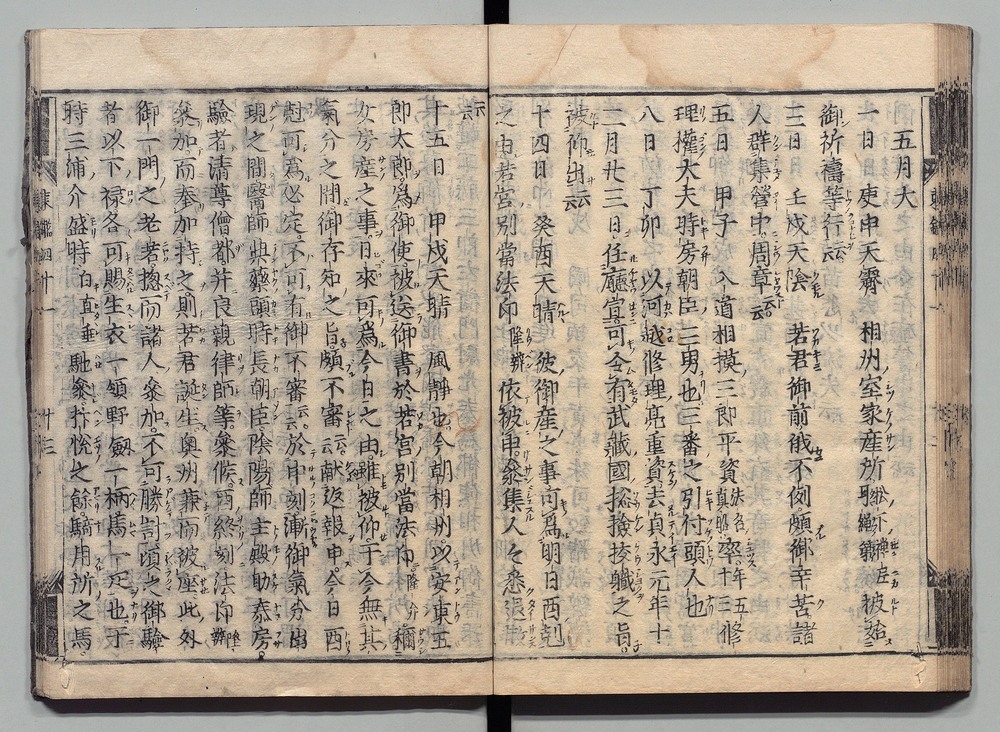 五月大
一日 庚申天霽 相州室家産所 松下禪尼 被始
御祈禱等行云云
三日 壬戌天陰 若君御前俄不例頗御辛苦諸
人群集營中周章云云
五日 甲子 入道相摸三郎平資 卒年五十 修
理權大夫時房朝臣二男也三番之引付頭人也
八日 丁卯 以河越修理亮重資去貞永元年十
二月廿三日任廳宣可令有武藏國揔撿挍職之旨
被仰出云云
十四日 癸酉天晴 彼御産之事可爲明日酉尅
之由若宮別當法印 隆辨 依被申參集人々悉退
云云
十五日 甲戌天晴 風靜也今朝相州以安東五
郎太郎爲御使被送御書於若宮別當法印 隆辨 稱
女房産之事日來可爲今日之由雖被仰于今無其
氣分之間御存知之旨頗不審云云献返報申今日酉
尅可爲必定不可有御不審云云於申刻漸御氣分出
現之間醫師典藥頭時長朝臣陰陽師主殿助泰房
驗者淸尊僧都并良親律師等參候酉終刻法印 隆辨
參加而奉加持之則若君誕生奥州兼而被座此外
御一門之老若揔而諸人參加不可勝計頃之御驗
者以下禄各可賜生衣一領野劔一柄馬一疋也于
時三浦介盛時白直垂馳參抃悅之餘騎用所之馬
東鑑四十一
廿三